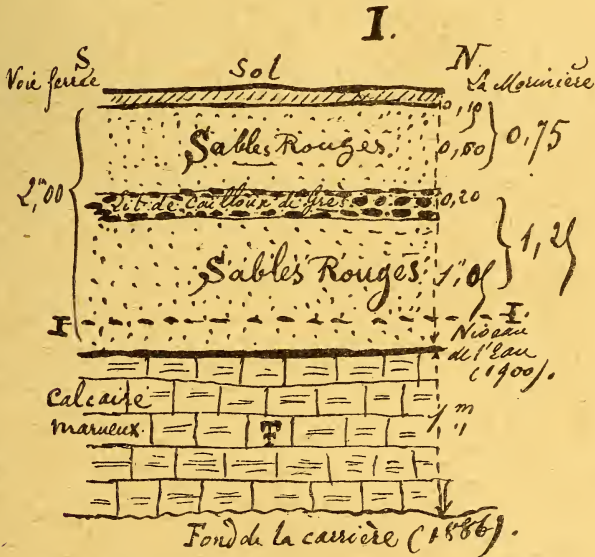 I.
S. Sol N.
Voie ferrée La Morinière
0,10
Sables Rouges 0,60 0,75
2,m00
Lit de cailloux de Grès 0,20
1,25
Sables Rouges 1,m05
I I.
Niveau
de l'Eau
(1900).
Calcaire
marneux T 1m
Fond de la carrière (1886).